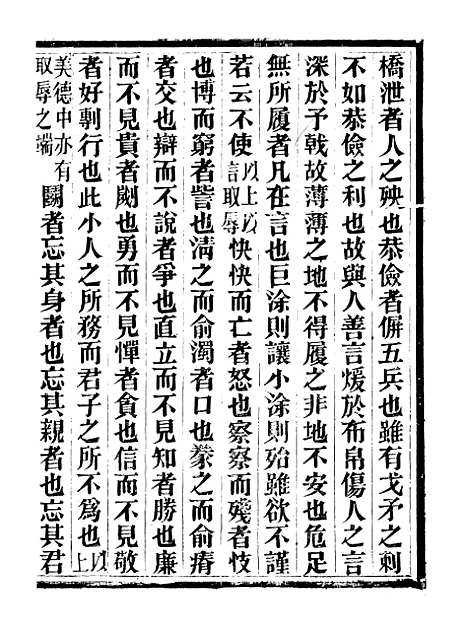 橋泄者人之殃也恭儉者偋五兵也雖有戈矛之刺
不如恭儉之利也故與人善言煖於布帛傷人之言
深於予戟故薄薄之地不得履之非地不安也危足
無所履者凡在言也巨涂則讓小涂則殆雖欲不謹
若云不使以上以言取辱快快而亡者怒也察察而殘者忮
也博而窮者訾也清之而俞濁者口也豢之而俞瘠
者交也辯而不說者爭也直立而不見知者勝也廉
而不見貴者劌也勇而不見憚者貪也信而不見敬
者好剸行也此小人之所務而君子之所不爲也以上
美德中亦有取辱之端鬬者忘其身者也忘其親者也忘其君